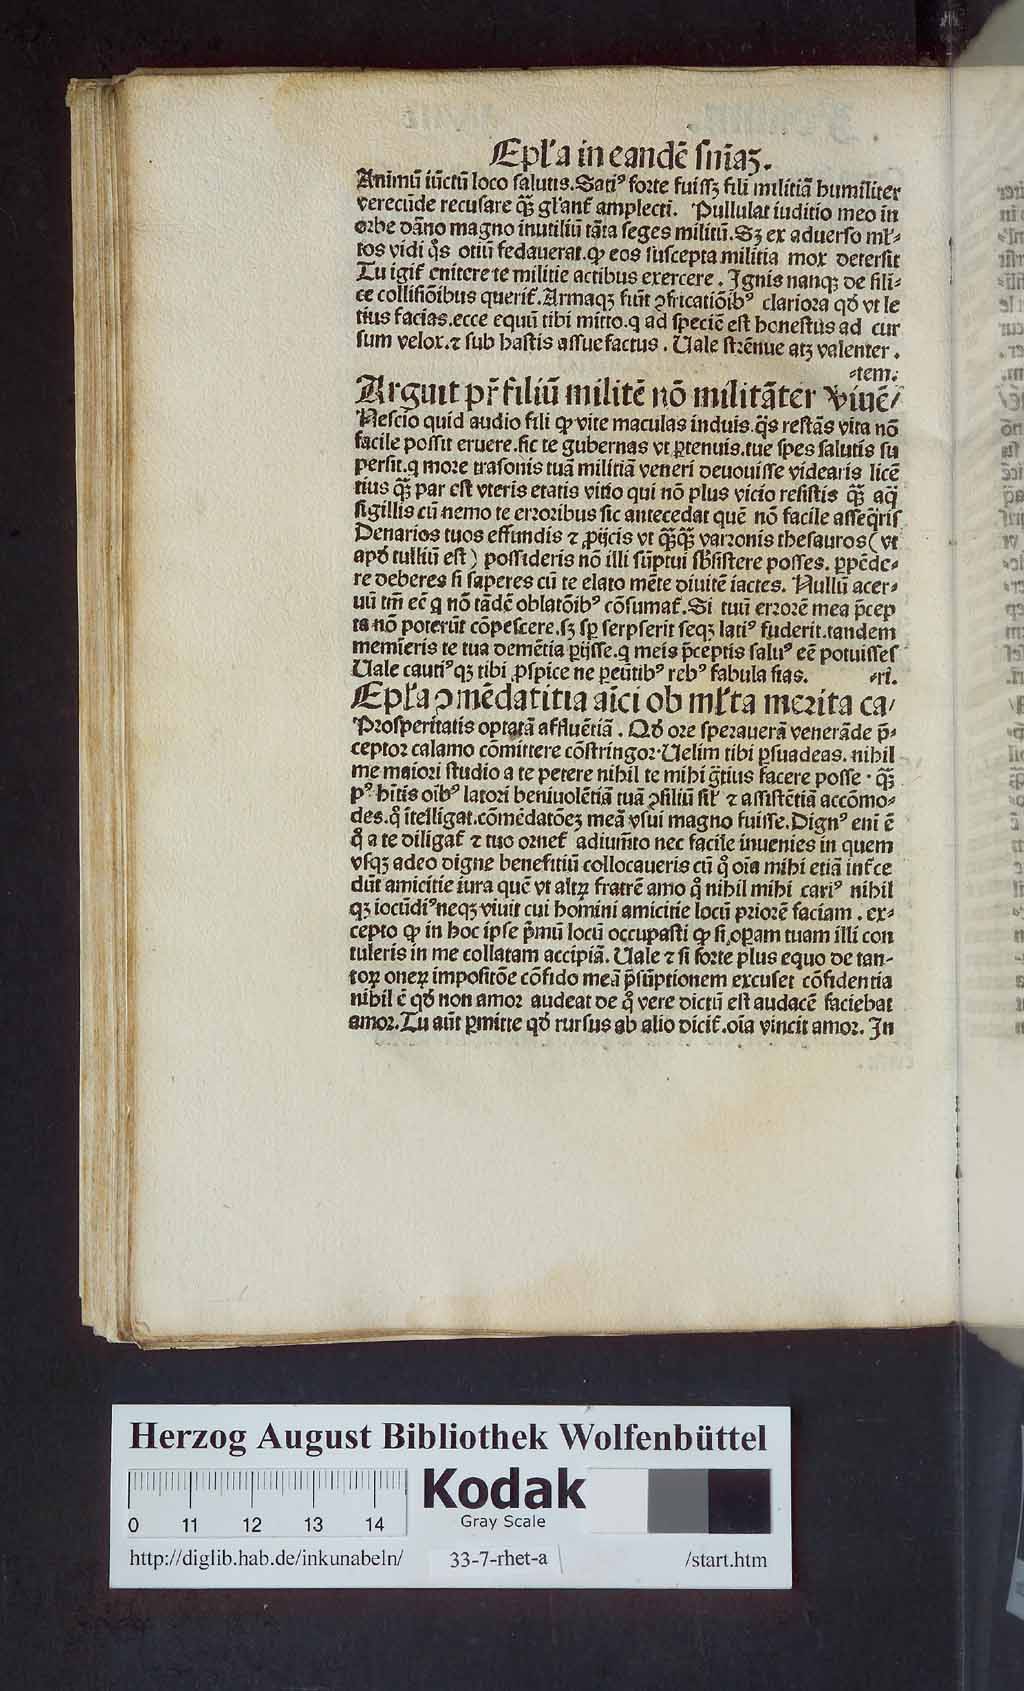 Epl'a in eandē snīaꝫ.
Animū iūctū loco salutis. Satiꝰ forte fuissꝫ fili militiā humiliter
verecūde recusare qꝫ̄ gl'ant̄ amplecti. Pullulat iuditio meo in
orbe dāno magno inutiliū tāta seges militū. Sꝫ ex aduerso ml'⸗
tos vidi q̊s otiū fedauerat. ꝙ eos suscepta militia mox detersit
Tu igit̄ enitere te militie actibus exercere. Ignis nanqꝫ de sili⸗
ce collisiōibus querit̄. Armaqꝫ fiūt ꝯfricatiōibꝰ clariora qđ vt le
tius facias. ecce equū tibi mitto. q ad speciē est honestus ad cur
sum velox. ⁊ sub hastis assuefactus. Uale strēnue atꝫ valenter.
⸗tem.
Arguit pr̄ filiū militē nō militāter viuē/
Nescio quid audio fili ꝙ vite maculas induis. q̄s restās vita nō
facile possit eruere. sic te gubernas vt ꝑtenuis. tue spes salutis su
persit. q more trasonis tuā militiā veneri deuouisse videaris licē
tius qꝫ̄ par est vteris etatis vitio qui nō plus vicio resistis qꝫ̄ aq̄
sigillis cū nemo te erroribus sic antecedat quē nō facile asseq̄ris
Denarios tuos effundis ⁊ ꝓijcis vt qꝫ̄qꝫ̄ varronis thesauros (vt
apđ tulliū est) possideris nō illi sūptui sb̄sistere posses. ꝑpēde⸗
re deberes si saperes cū te elato mēte diuitē iactes. Nullū acer⸗
uū tm̄ eē q nō tādē oblatōibꝰ cōsumat̄. Si tuū errorē mea p̄cep
ta nō poterūt cōpescere. sꝫ sꝑ serpserit seqꝫ latiꝰ fuderit. tandem
memīeris te tua demētia ꝑijsse. q meis p̄ceptis saluꝰ eē potuisses
Uale cautiꝰqꝫ tibi ꝓspice ne ꝑeūtibꝰ rebꝰ fabula fias.
⸗ri.
Epl'a ꝯmēdatitia aīci ob ml'ta merita ca/
Prosperitatis optatā affluētiā. Qđ ore speraueram venerāde p̄⸗
ceptor calamo cōmittere cōstringor. Uelim tibi ꝑsuadeas. nihil
me maiori studio a te petere nihil te mihi g̊tius facere posse. qꝫ̄
pꝰ hn̄tis oībꝰ latori beniuolētiā tuā ꝯsiliū sil' ⁊ assistētiā accōmo⸗
des. q̊ ītelligat. cōmēdatōeꝫ meā vsui magno fuisse. Dignꝰ eni ē
q̊ a te diligat̄ ⁊ tuo ornet̄ adium̄to nec facile inuenies in quem
vsqꝫ adeo digne benefitiū collocaueris cū q̊ oīa mihi etiā int̄ce
dūt amicitie iura quē vt altꝝ fratrē amo q̊ nihil mihi cariꝰ nihil
qꝫ iocūdiꝰ neqꝫ viuit cui homini amicitie locū priorē faciam. ex⸗
cepto ꝙ in hoc ipse p̄mū locū occupasti ꝙ si oꝑam tuam illi con
tuleris in me collatam accipiā. Uale ⁊ si forte plus equo de tan⸗
toꝝ oneꝝ impositōe cōfido meā p̄sūptionem excuset cōfidentia
nihil ē qđ non amor audeat de q̊ vere dictū est audacē faciebat
amor. Tu aūt ꝑmitte qđ rursus ab alio dicit̄. oīa vincit amor. In
Herzog August Bibliothek Wolfenbüttel
Kodak
Gray Scale
0 11 12 13 14
http://diglib.hab.de/inkunabeln/ 33-7-rhet-a /start.htm